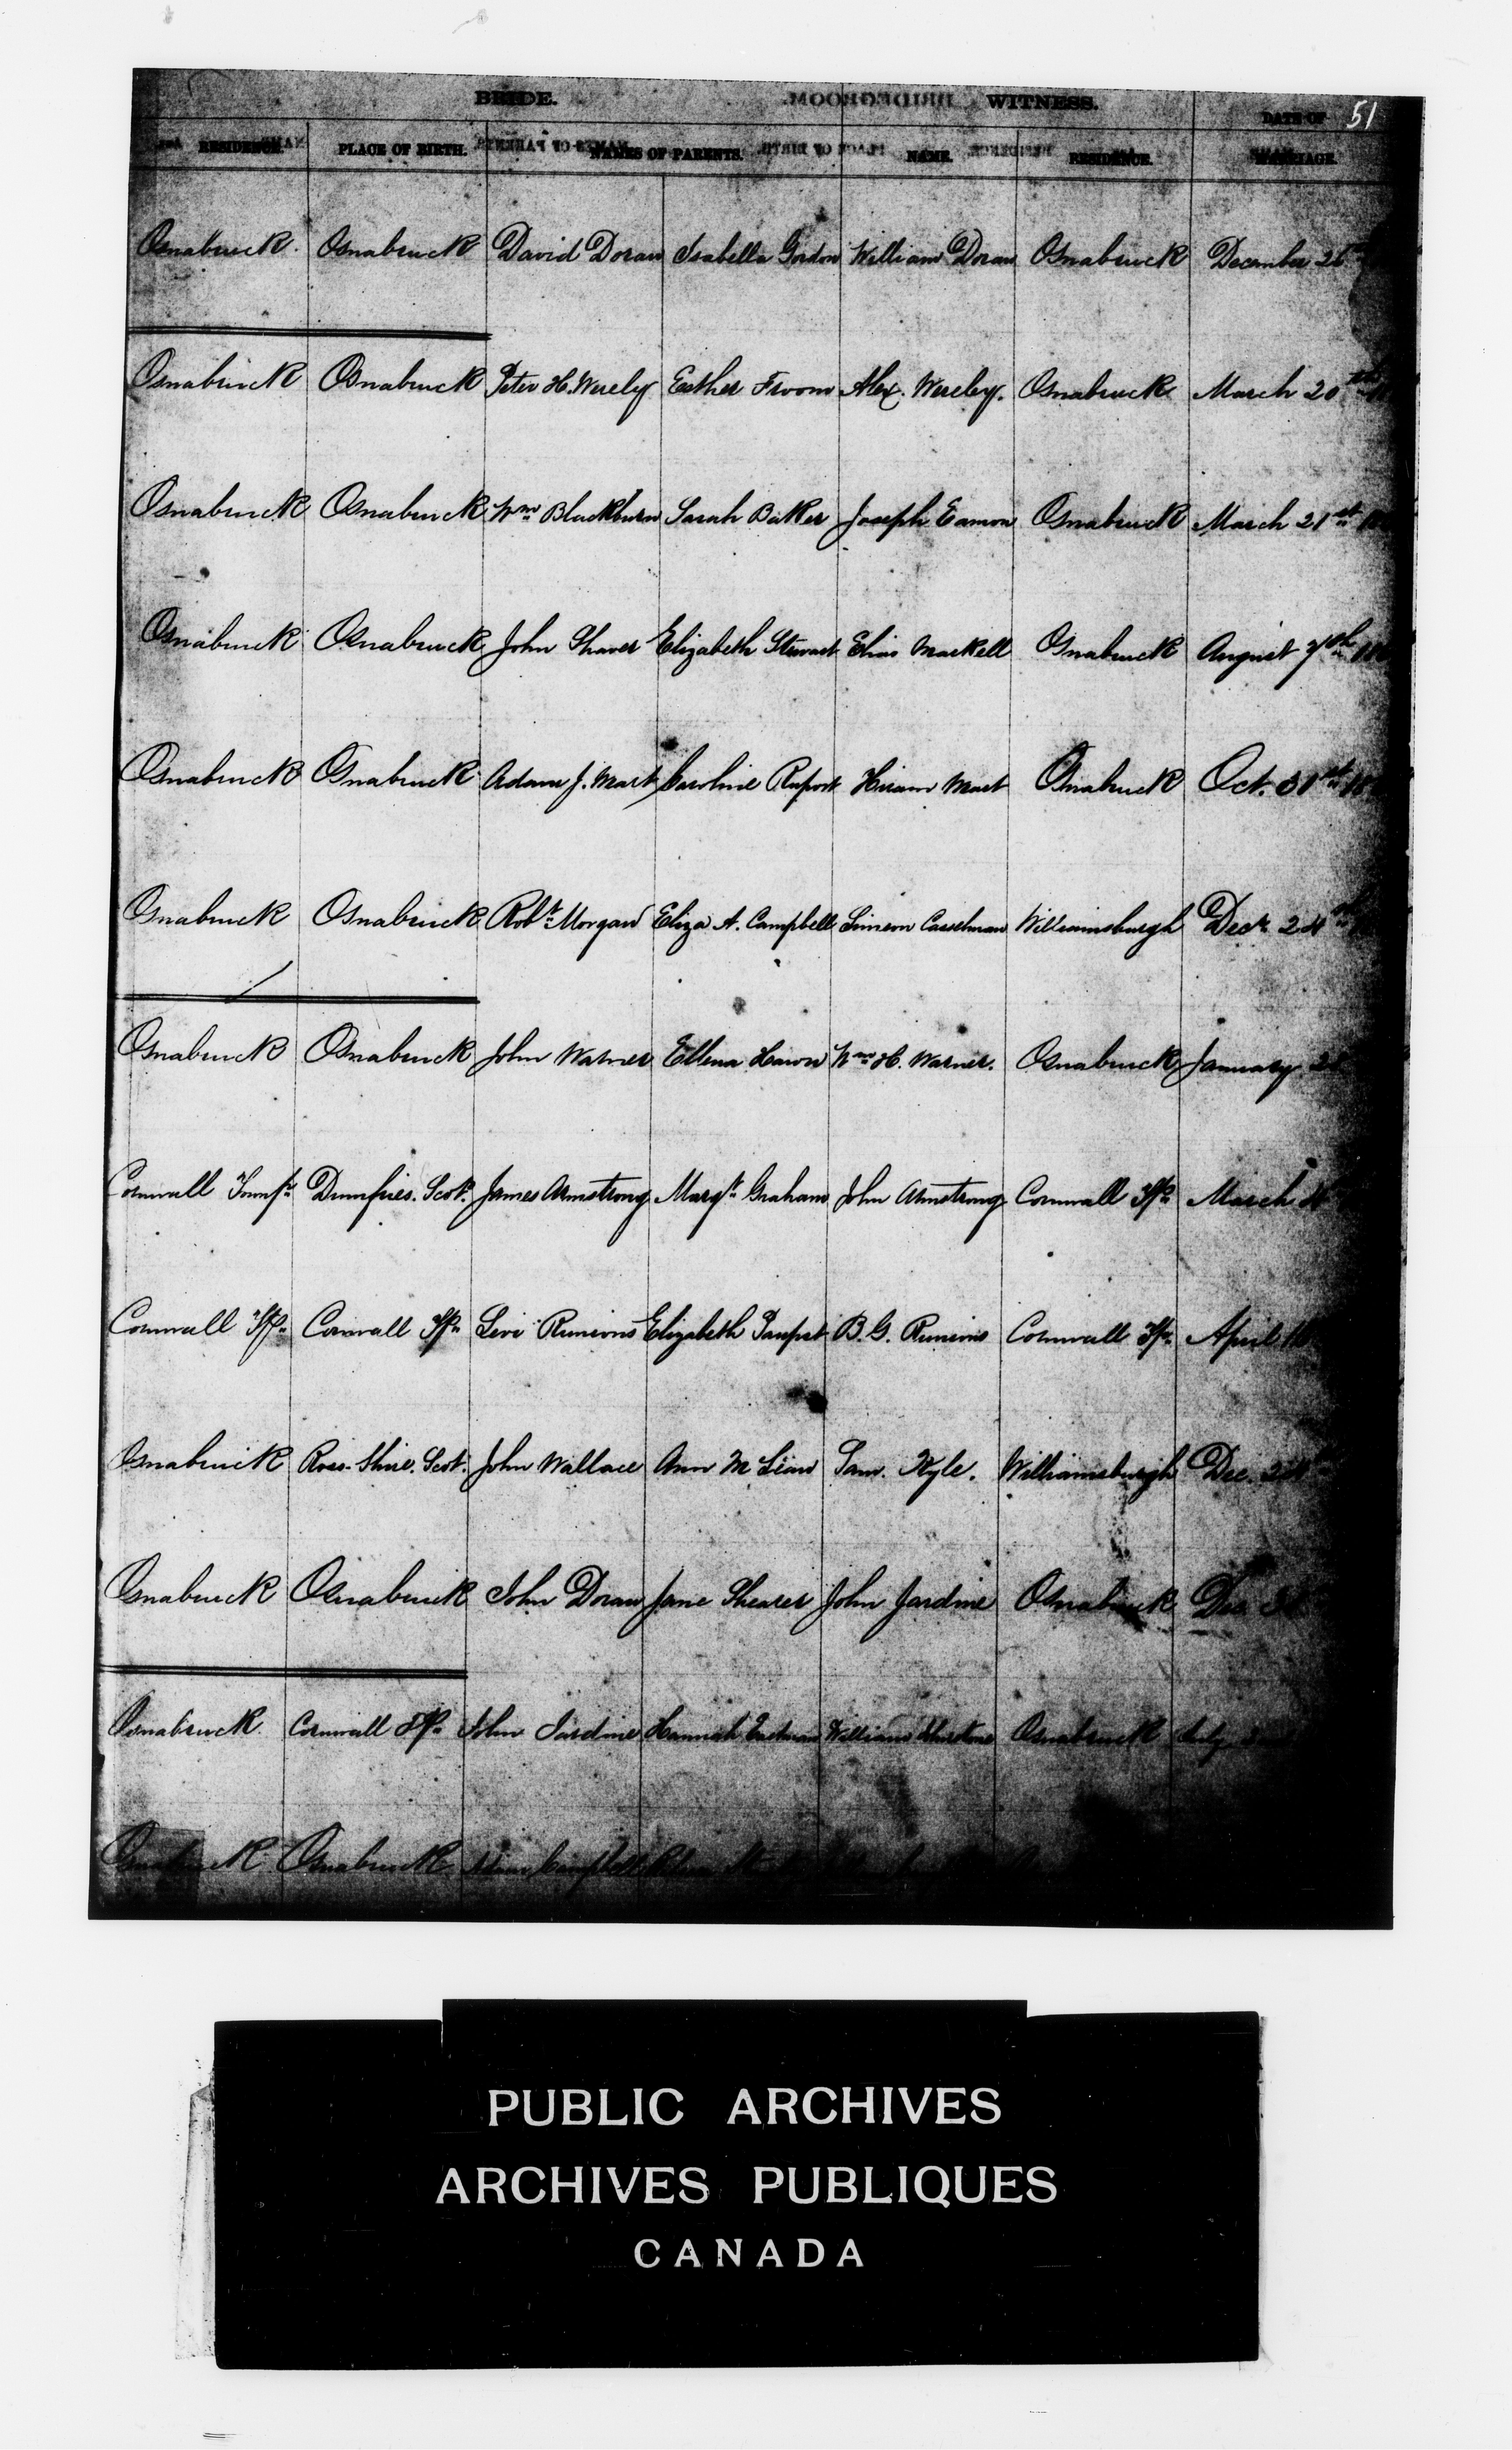 51
BRIDE. WITNESS. DATE OF
RESIDENCE. PLACE OF BIRTH. NAMES OF PARENTS. NAME. RESIDENCE. MARRIAGE.
Osnabruck. Osnabruck David Doran Isabella Gordon William Doran Osnabruck December 26
Osnabruck Osnabruck Peter H. Werely Esther Froom Alex. Wereley. Osnabruck March 20th
Osnabruck Osnabruck Wm Blackburn Sarah Baker Joseph Eamon Osnabruck March 21st
Osnabruck Osnabruck John Shaver Elizabeth Stewart Elias Markell Osnabruck August 7th
Osnabruck Osnabruck Adam J. Mart Caroline Ruport Hiram Mart Osnabruck Oct. 31st 18
Osnabruck Osnabruck Robt. Morgan Eliza A. Campbell Simeon Casselman Williamsburgh Decr. 24
Osnabruck Osnabruck John Warner Ellena Hawn Wm H. Warner. Osnabruck January 2
Cornwall Townsp Dumfries. Scot. James Armstrong Margt. Graham John Armstrong Cornwall Tp March 4
Cornwall Tp Cornwall Tp Levi Runions Elizabeth Paupst B. G. Runions Cornwall Tp April
Osnabruck Ross-Shire. Scot. John Wallace Ann McLean Sam. Kyle. Williamsburgh Dec. 24
Osnabruck Osnabruck John Doran Jane Shearer John Jardine Osnabruck Dec
Osnabruck Cornwall Tp John Jardine Hannah Eastman William Osnabruck July
Osnabruck Osnabruck Campbell
PUBLIC ARCHIVES
ARCHIVES PUBLIQUES
CANADA